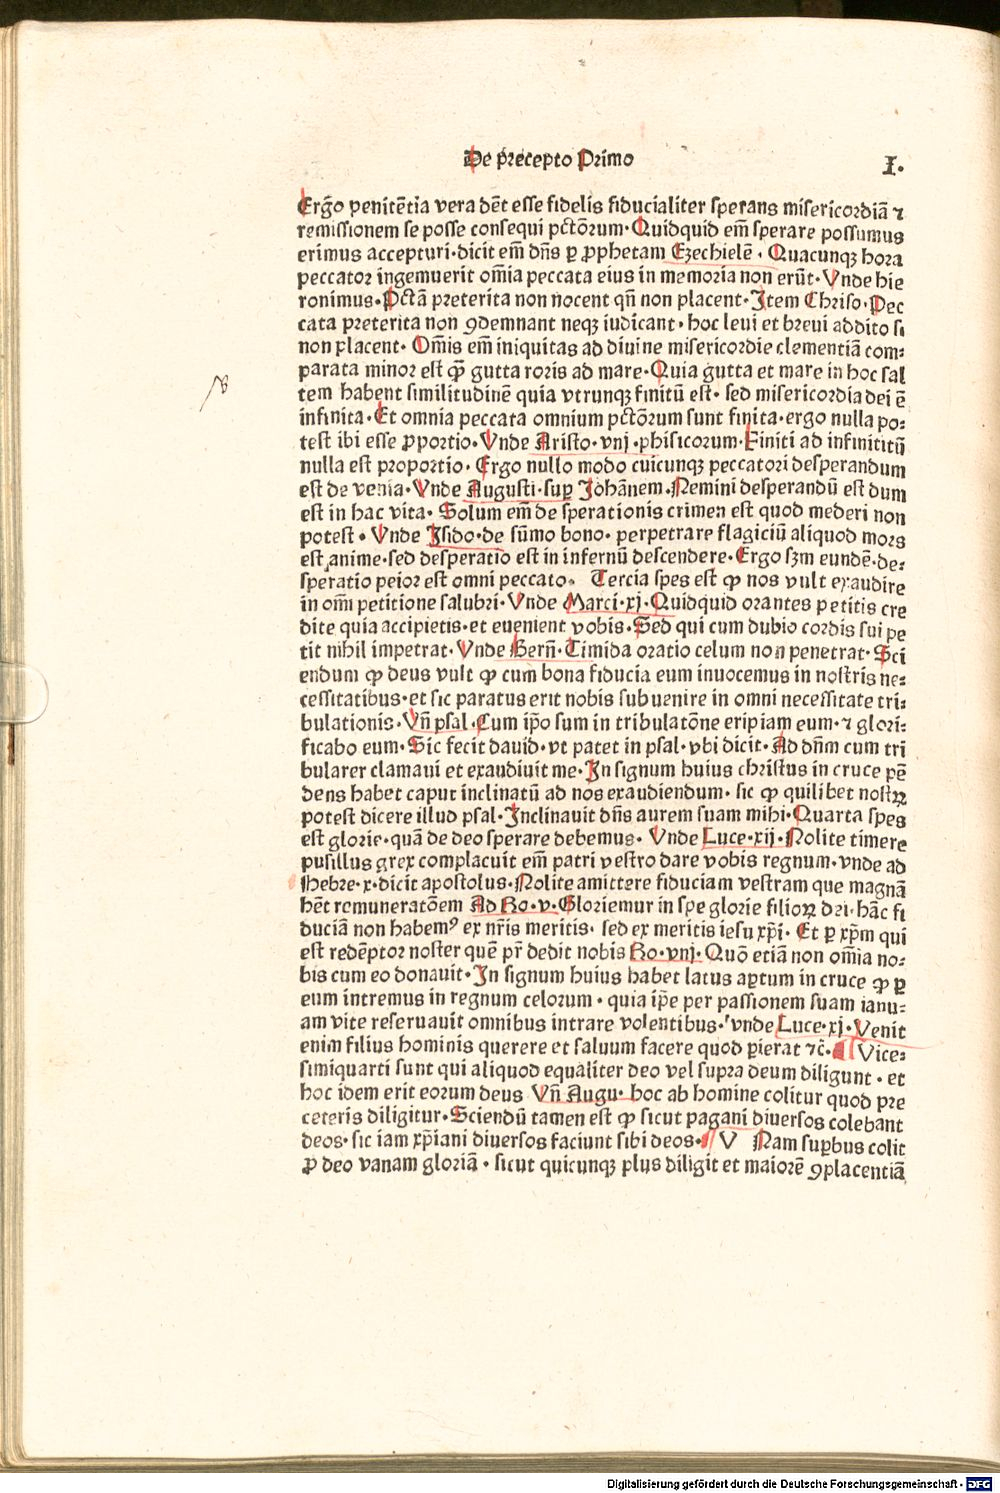 De precepto Primo
I.
Ergo penitẽtia vera dẽt esse fidelis fiducialiter sperans misericordiã ⁊
remissionem se posse consequi pctõrum·Quidquid em̃ sperare possumus
erimus accepturi·dicit em̃ dñs ꝑ ꝓphetam Ezechielẽ· Quacunqꝫ hora
peccator ingemuerit om̃ia peccata eius in memoria non erũt·Vnde hie
ronimus·Pctã preterita non nocent qñ non placent·Item Chriso·Pec
cata preterita non ꝯdemnant neqꝫ iudicant·hoc leui et breui addito si
non placent· Om̃is em̃ iniquitas ad diuine misericordie clementiã com⸗
parata minor est qͣ̃ gutta roris ad mare·Quia gutta et mare in hoc sal
tem habent similitudinẽ quia vtrunqꝫ finitũ est· sed misericordia dei ẽ
infinita·Et omnia peccata omnium pctõrum sunt finita·ergo nulla po⸗
test ibi esse ꝓportio·Vnde Aristo·vnj·phisicorum·Finiti ad infinititũ
nulla est proportio· Ergo nullo modo cuicunqꝫ peccatori desperandum
est de venia·Vnde Augusti·suꝑ Johãnem·Nemini desperandũ est dum
est in hac vita· Solum em̃ de sperationis crimen est quod mederi non
potest· Vnde Isido·de sũmo bono· perpetrare flagiciũ aliquod mors
est anime·sed desperatio est in infernũ descendere·Ergo sꝫm eundẽ·de⸗
speratio peior est omni peccato· Tercia spes est ꝙ nos vult exaudire
in om̃i petitione salubri·Vnde Marci·xj·Quidquid orantes petitis cre
dite quia accipietis·et euenient vobis·Sed qui cum dubio cordis sui pe
tit nihil impetrat·Vnde Berñ·Timida oratio celum non penetrat·Sci
endum ꝙ deus vult ꝙ cum bona fiducia eum inuocemus in nostris ne⸗
cessitatibus·et sic paratus erit nobis subuenire in omni necessitate tri⸗
bulationis·Vñ psal·Cum ip̃o sum in tribulatõne eripiam eum·⁊ glori⸗
ficabo eum·Sic fecit dauid·vt patet in psal·vbi dicit·Ad dñm cum tri
bularer clamaui et exaudiuit me·In signum huius christus in cruce pẽ
dens habet caput inclinatũ ad nos exaudiendum· sic ꝙ quilibet nostrꝝ
potest dicere illud psal·Inclinauit dñs aurem suam mihi·Quarta spes
est glorie·quã de deo sperare debemus· Vnde Luce·xij·Nolite timere
pusillus grex complacuit em̃ patri vestro dare vobis regnum·vnde ad
Hebre·x·dicit apostolus·Nolite amittere fiduciam vestram que magnã
hẽt remuneratõem Ad Ro·v·Gloriemur in spe glorie filioꝝ dei·hãc fi
duciã non habemꝰ ex nr̃is meritis· sed ex meritis iesu xp̃i· Et ꝑ xp̃m qui
est redẽptor noster quẽ pr̃ dedit nobis Ro·vnj·Quõ etiã non om̃ia no⸗
bis cum eo donauit·In signum huius habet latus aꝑtum in cruce ꝙ ꝑ
eum intremus in regnum celorum· quia ip̃e per passionem suam ianu⸗
am vite reseruauit omnibus intrare volentibus·vnde Luce·xj·Venit
enim filius hominis querere et saluum facere quod ꝑierat ⁊c̃· Vice⸗
simiquarti sunt qui aliquod equaliter deo vel supra deum diligunt· et
hoc idem erit eorum deus Vñ Augu·hoc ab homine colitur quod pre
ceteris diligitur·Sciendũ tamen est ꝙ sicut pagani diuersos colebant
deos·sic iam xp̃iani diuersos faciunt sibi deos· V Nam suꝑbus colit
ꝓ deo vanam gloriã·sicut quicunqꝫ plus diligit et maiorẽ ꝯplacentiã
Digitalisierung gefördert durch die Deutsche Forschungsgemeinschaft · DFG